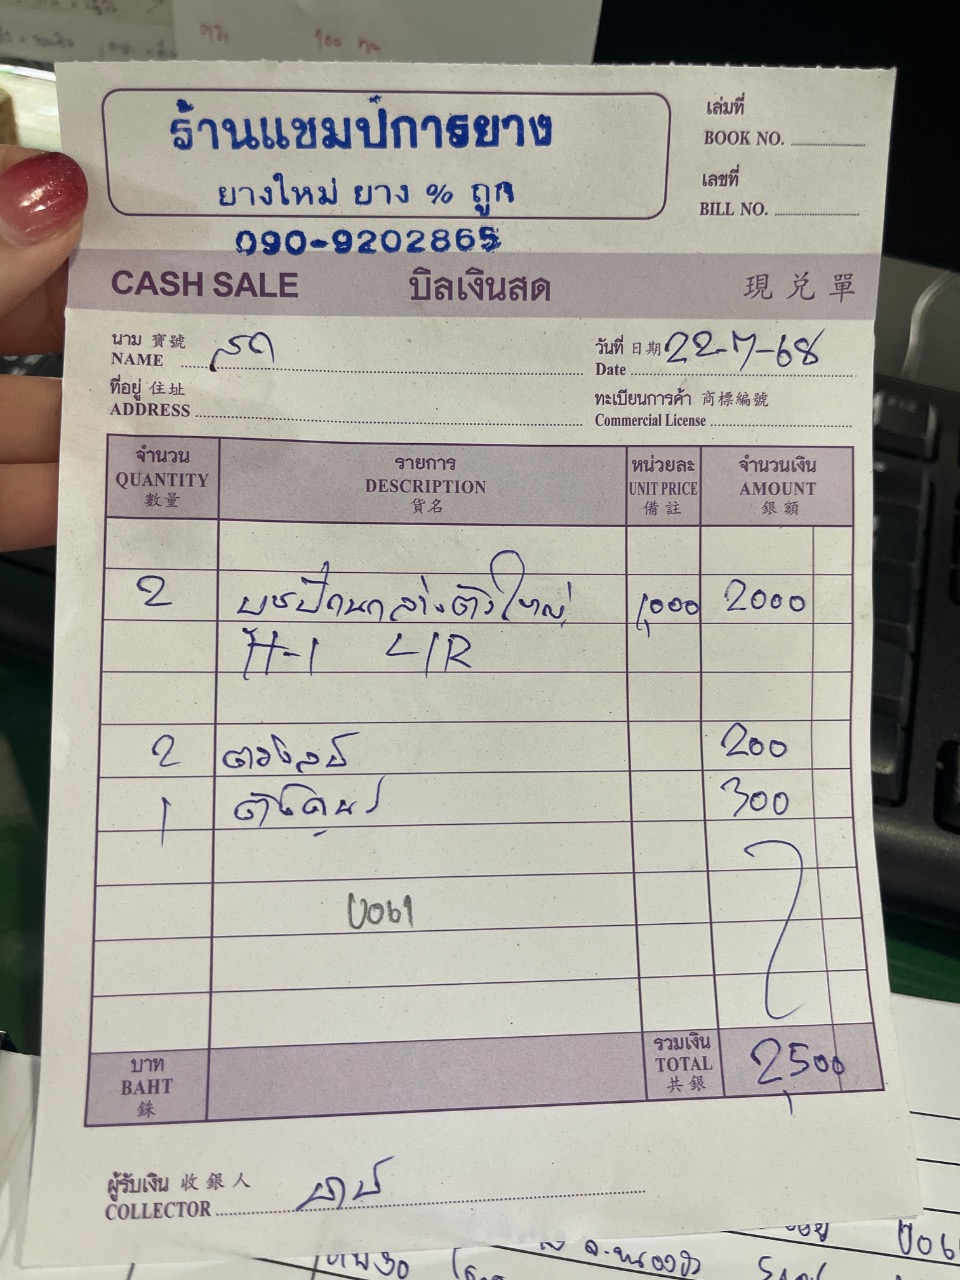 ร้านแชมป์การยาง
ยางใหม่ ยาง % ถูก
090-9202865
เล่มที่
BOOK NO.
เลขที่
BILL NO.
CASH SALE บิลเงินสด 現兌單
นาม 寶號
NAME สด
วันที่ 日期 22-7-68
Date
ที่อยู่ 住址
ADDRESS
ทะเบียนการค้า 商標編號
Commercial License
จำนวน รายการ หน่วยละ จำนวนเงิน
QUANTITY DESCRIPTION UNIT PRICE AMOUNT
數量 貨名 備註 銀額
2 บูชปีกนกล่างตัวใหญ่ 1,000 2000
H-1 L/R
2 200
1 300
รวมเงิน
บาท TOTAL 2,500
BAHT 共銀
銖
ผู้รับเงิน 收銀人
COLLECTOR